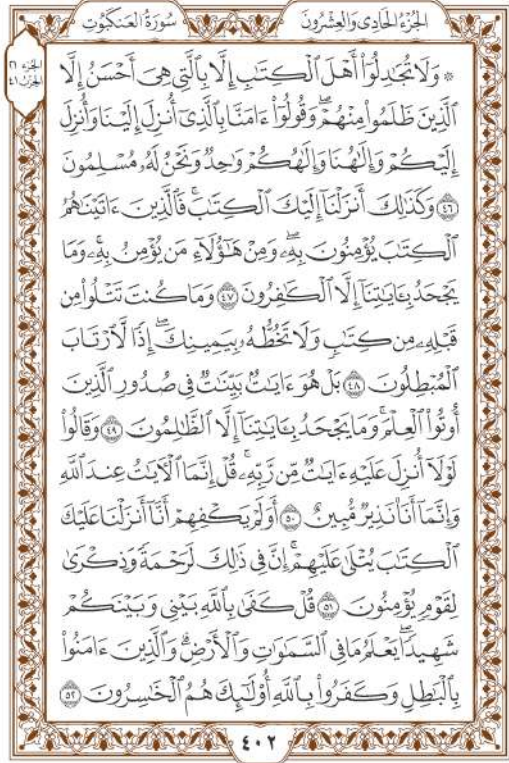 الجُزْءُ الحَادِي وَالعِشْرُونَ
سُورَةُ العَنكَبُوتِ
الجزء ٢١
الحزب ٤١
۞ وَلَا تُجَٰدِلُوٓا۟ أَهْلَ ٱلْكِتَٰبِ إِلَّا بِٱلَّتِى هِىَ أَحْسَنُ إِلَّا
ٱلَّذِينَ ظَلَمُوا۟ مِنْهُمْ ۖ وَقُولُوٓا۟ ءَامَنَّا بِٱلَّذِىٓ أُنزِلَ إِلَيْنَا وَأُنزِلَ
إِلَيْكُمْ وَإِلَٰهُنَا وَإِلَٰهُكُمْ وَٰحِدٌ وَنَحْنُ لَهُۥ مُسْلِمُونَ
٤٦ وَكَذَٰلِكَ أَنزَلْنَآ إِلَيْكَ ٱلْكِتَٰبَ ۚ فَٱلَّذِينَ ءَاتَيْنَٰهُمُ
ٱلْكِتَٰبَ يُؤْمِنُونَ بِهِۦ ۖ وَمِنْ هَٰٓؤُلَآءِ مَن يُؤْمِنُ بِهِۦ ۚ وَمَا
يَجْحَدُ بِـَٔايَٰتِنَآ إِلَّا ٱلْكَٰفِرُونَ ٤٧ وَمَا كُنتَ تَتْلُوا۟ مِن
قَبْلِهِۦ مِن كِتَٰبٍ وَلَا تَخُطُّهُۥ بِيَمِينِكَ ۖ إِذًا لَّٱرْتَابَ
ٱلْمُبْطِلُونَ ٤٨ بَلْ هُوَ ءَايَٰتٌۢ بَيِّنَٰتٌ فِى صُدُورِ ٱلَّذِينَ
أُوتُوا۟ ٱلْعِلْمَ ۚ وَمَا يَجْحَدُ بِـَٔايَٰتِنَآ إِلَّا ٱلظَّٰلِمُونَ ٤٩ وَقَالُوا۟
لَوْلَآ أُنزِلَ عَلَيْهِ ءَايَٰتٌ مِّن رَّبِّهِۦ ۖ قُلْ إِنَّمَا ٱلْـَٔايَٰتُ عِندَ ٱللَّهِ
وَإِنَّمَآ أَنَا۠ نَذِيرٌ مُّبِينٌ ٥٠ أَوَلَمْ يَكْفِهِمْ أَنَّآ أَنزَلْنَا عَلَيْكَ
ٱلْكِتَٰبَ يُتْلَىٰ عَلَيْهِمْ ۚ إِنَّ فِى ذَٰلِكَ لَرَحْمَةً وَذِكْرَىٰ
لِقَوْمٍ يُؤْمِنُونَ ٥١ قُلْ كَفَىٰ بِٱللَّهِ بَيْنِى وَبَيْنَكُمْ
شَهِيدًا ۖ يَعْلَمُ مَا فِى ٱلسَّمَٰوَٰتِ وَٱلْأَرْضِ ۗ وَٱلَّذِينَ ءَامَنُوا۟
بِٱلْبَٰطِلِ وَكَفَرُوا۟ بِٱللَّهِ أُو۟لَٰٓئِكَ هُمُ ٱلْخَٰسِرُونَ ٥٢
٤٠٢